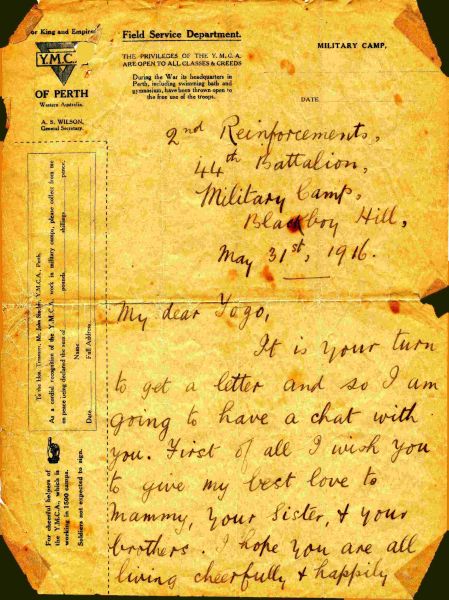 For King and Empire
Y.M.C.
OF PERTH
Western Australia.
A. S. WILSON,
General Secretary.
Field Service Department.
THE PRIVILEGES OF THE Y.M.C.A.
ARE OPEN TO ALL CLASSES & CREEDS
During the War its headquarters in
Perth, including swimming bath and
gymnasium, have been thrown open to
the free use of the troops.
MILITARY CAMP,
DATE
2nd Reinforcements,
44th Battalion,
Military Camp,
Blackboy Hill,
May 31st, 1916.
My dear Togo,
It is your turn
to get a letter and so I am
going to have a chat with
you. First of all I wish you
to give my best love to
Mammy, your Sister, & your
brothers. I hope you are all
living cheerfully & happily
To the Hon. Treasurer, Mr. John Y.M.C.A., Perth.
As a cordial recognition of the Y.M.C.A. work in military camps, please collect from me
on peace being declared the sum of pounds shillings pence.
Name
Full Address
Date
For cheerful helpers of
the Y.M.C.A., which is
working in 1500 camps.
Soldiers not expected to sign.